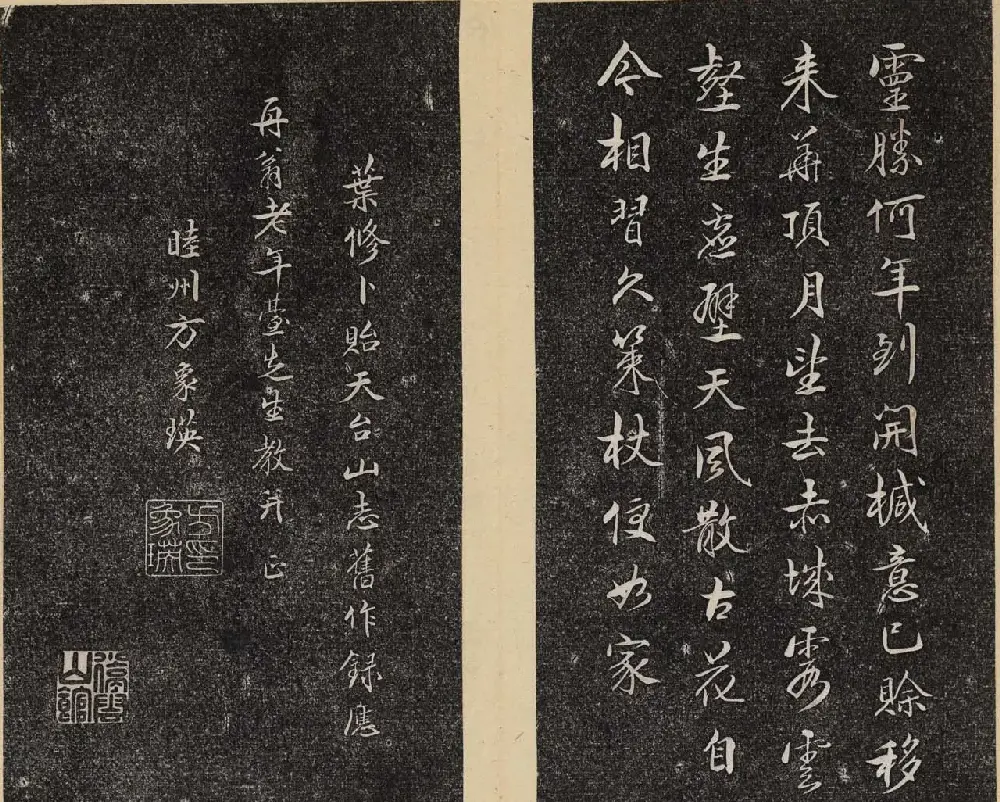 靈勝何年到開椷意已賒移
来華頂月望去赤城霞雲
壑生壁天風散古花自
今相習久策杖便如家
葉修卜貽天台山志舊作録應
再翁老年臺先生教并正
睦州方象瑛
方印象瑛